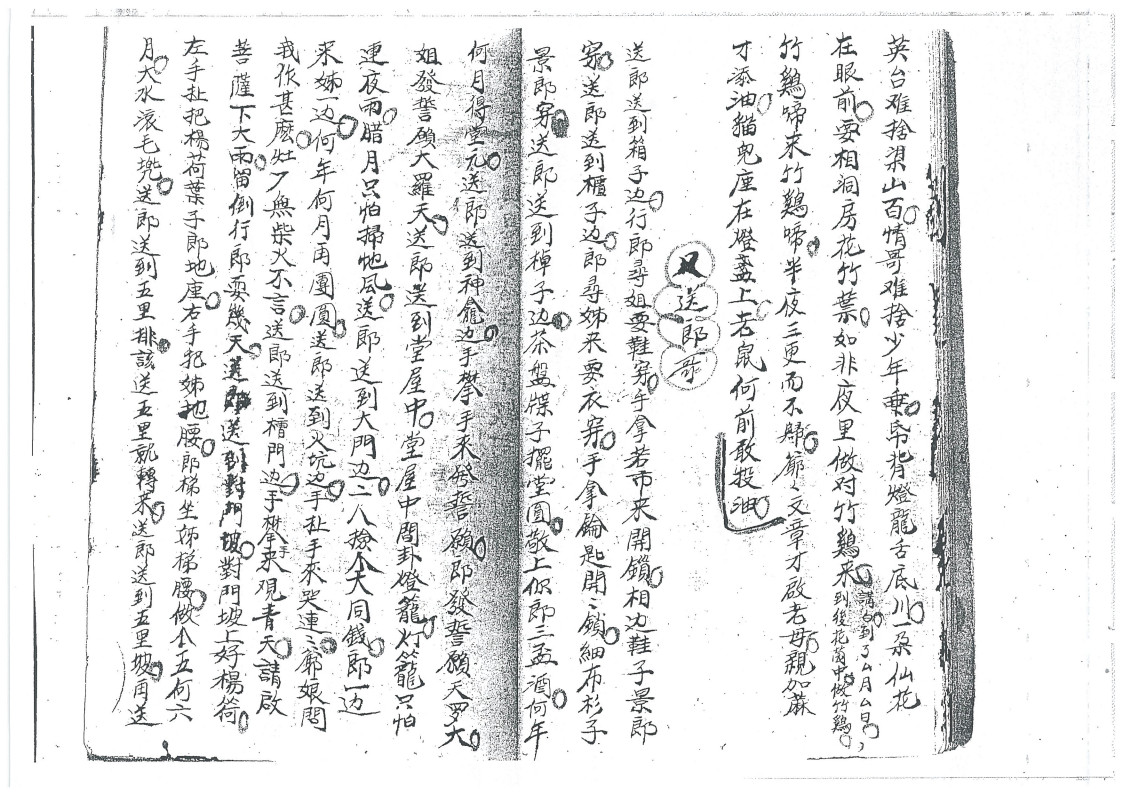 英台难捨梁山百情哥难捨少年乗帋背燈龍舌底川一朶仙花
在眼前要相洞房花竹葉如非夜里做对竹鷄来
講白到了ム月ム日
到後花茵中做竹鷄
竹鷄啼来竹鷄啼半夜三更而不歸爺〻文章才啟老母親加蔴
才添油猫兜座在燈盞上老鼠何前敢投油
又送郎哥
送郎送到箱子边行郎尋姐要鞋穿手拿若市来開鎖相边鞋子景郎
穿送郎送到櫃子边郎尋姊来要衣穿手拿鑰匙開〻鎖細布衫子
景郎穿送郎送到棹子边茶盤牒子擺堂圓敬上你郎三盃酒何年
何月得堂元送郎送到神龕边手攀手来發誓願郎發誓願天罗大
姐發誓願大羅天送郎送到堂屋中堂屋中間卦燈籠灯籠只怕
連夜雨腊月只怕掃地風送郎送到大門边二人撿个大同錢郎一边
来姊一边何年何月再團圓送郎送到火坑边手扯手来哭連〻爺娘問
我作甚麽灶了無柴火不言送郎送到槽門边手攀手来观青天請啟
菩薩下大雨畄倒行郎耍幾天送郎送到對門坡對門坡上好楊荷
左手扯把楊荷葉手郎地座右手把姊抱腰郎梯坐姊梯腰做个五何六
月大水滚毛兠送郎送到五里排該送五里就轉来送郎送到五里坡再送